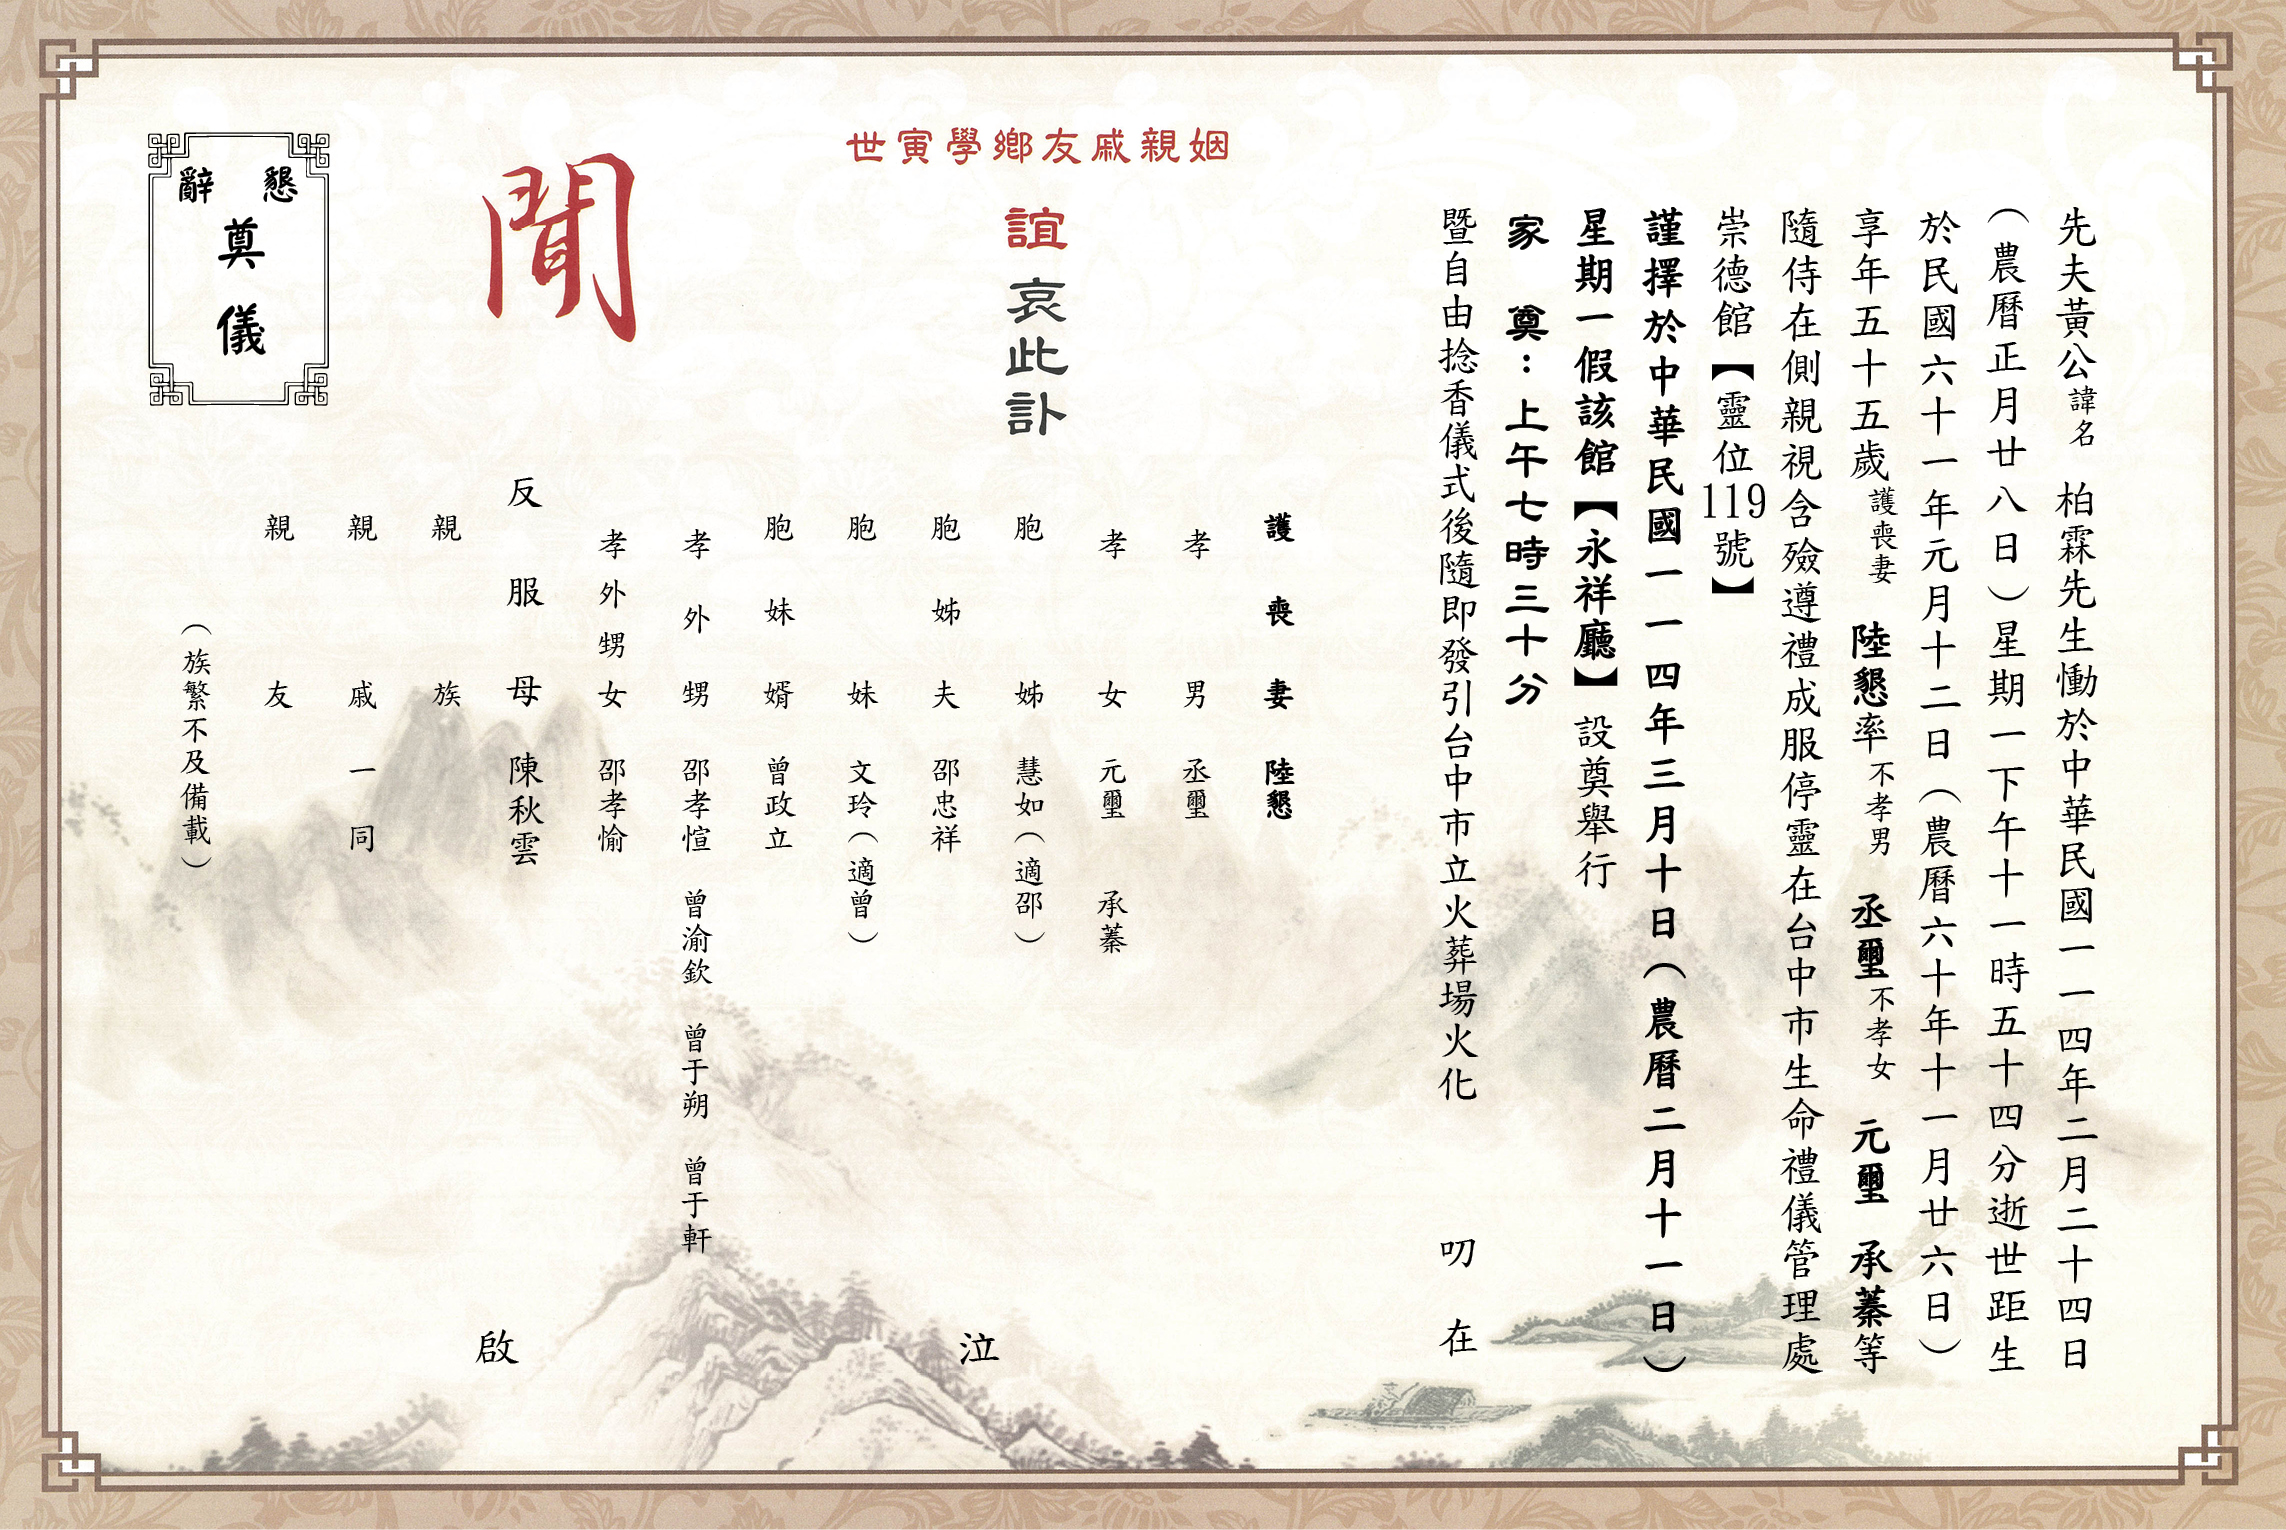 先夫黃公諱名 柏霖先生慟於中華民國一一四年二月二十四日
（農曆正月廿八日）星期一下午十一時五十四分逝世距生
於民國六十一年元月十二日（農曆六十年十一月廿六日）
享年五十五歲護喪妻 陸懇率不孝男 丞璽不孝女 元璽 承蓁等
隨侍在側親視含殮遵禮成服停靈在台中市生命禮儀管理處
崇德館【靈位119號】
謹擇於中華民國一一四年三月十日（農曆二月十一日）
星期一假該館【永祥廳】設奠舉行
家 奠：上午七時三十分
暨自由捻香儀式後隨即發引台中市立火葬場火化 叨 在
姻親戚友鄉學寅世
誼 哀此訃
聞
護喪妻 陸懇
孝男 丞璽
孝女 元璽 承蓁
胞姊 慧如（適邵）
胞姊夫 邵忠祥
胞妹 文玲（適曾）
胞妹婿 曾政立
孝外甥 邵孝愃 曾渝欽 曾于朔 曾于軒
孝外甥女 邵孝愉
反服母 陳秋雲
親族
親戚一同
親友
（族繁不及備載）
泣 啟
懇辭
奠儀